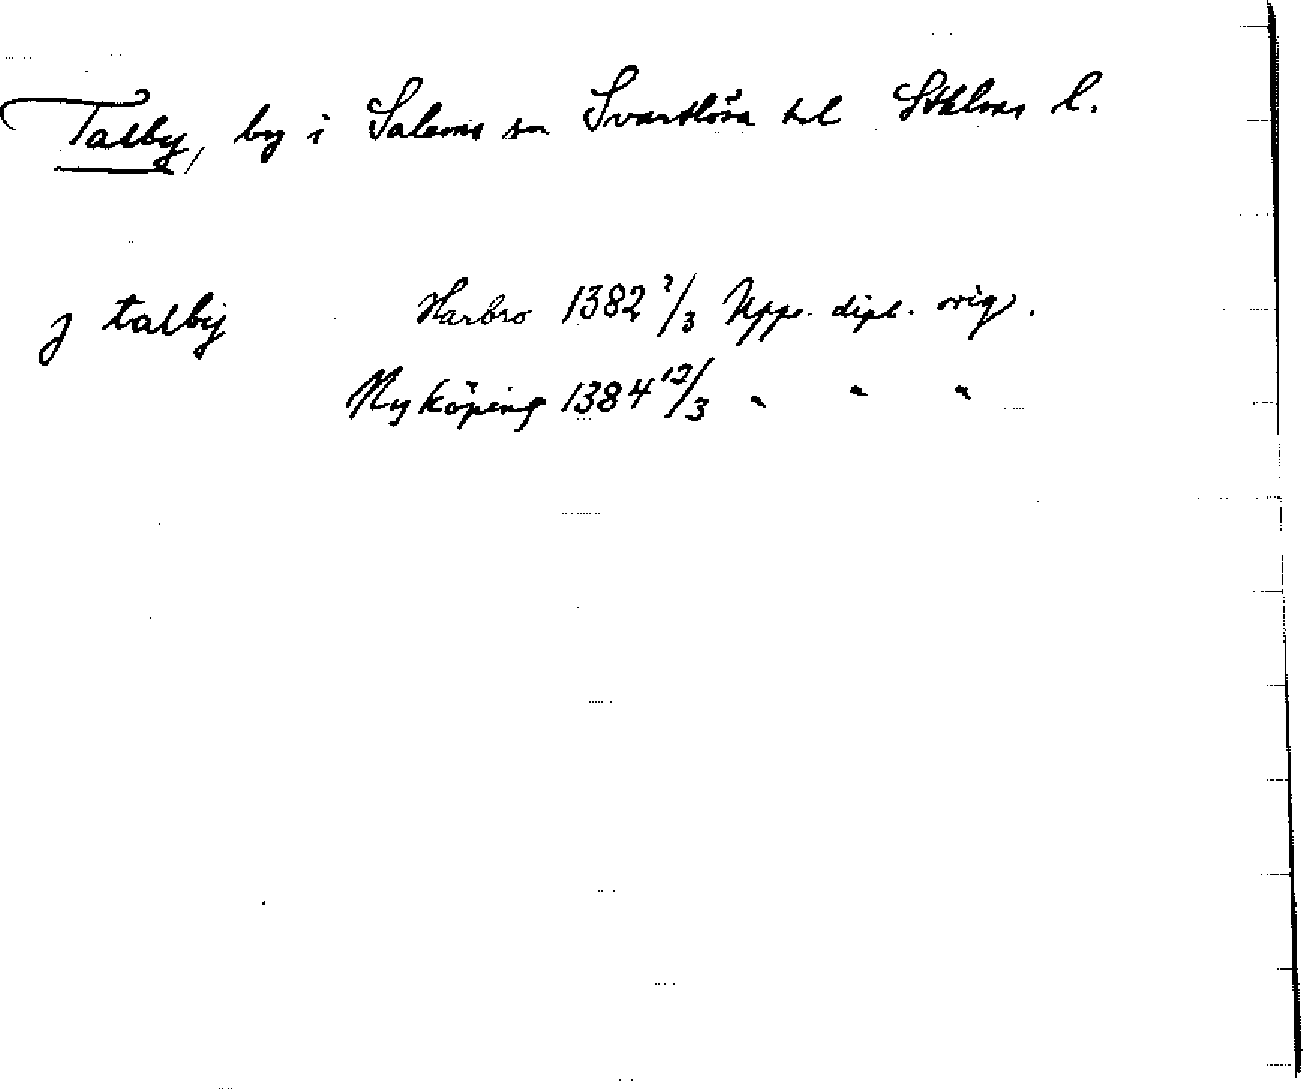 Talby, by i Salems sn Svartlösa hd Sthlms l.
j talby Harbro 1382 ?/3 Upps. dipl. orig.
Nyköping 1384 12/3 " " "